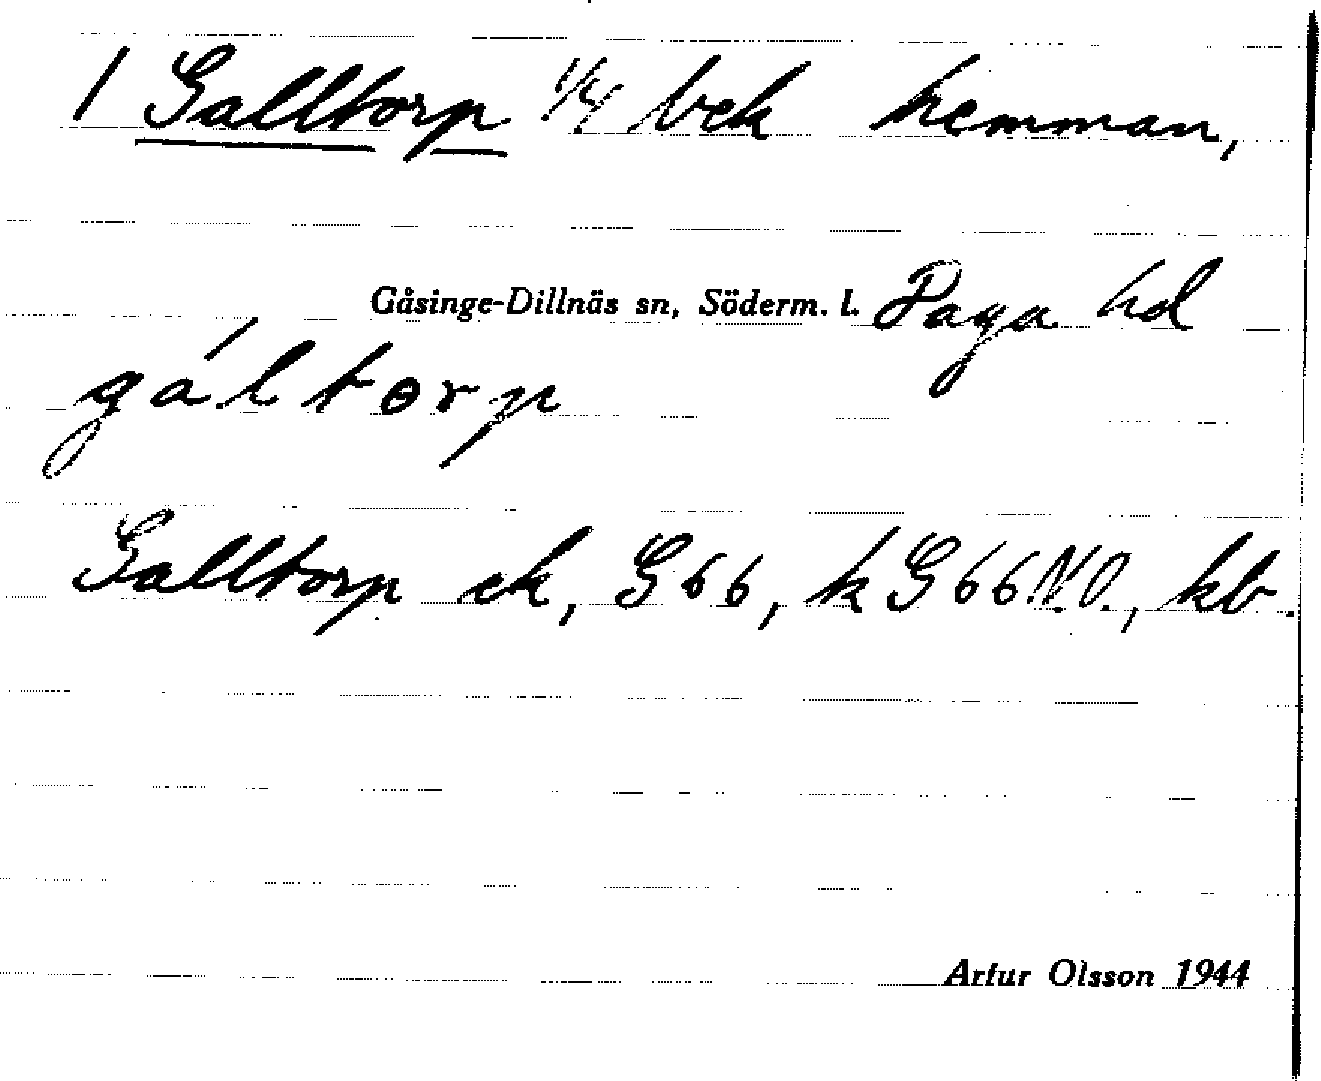 1 Galltorp 1/4 bek hemman,
Gåsinge-Dillnäs sn, Söderm. l. Daga hd
gáltorp
Galltorp ek, G 66, k G 66 N.O., kb.
Artur Olsson 1944